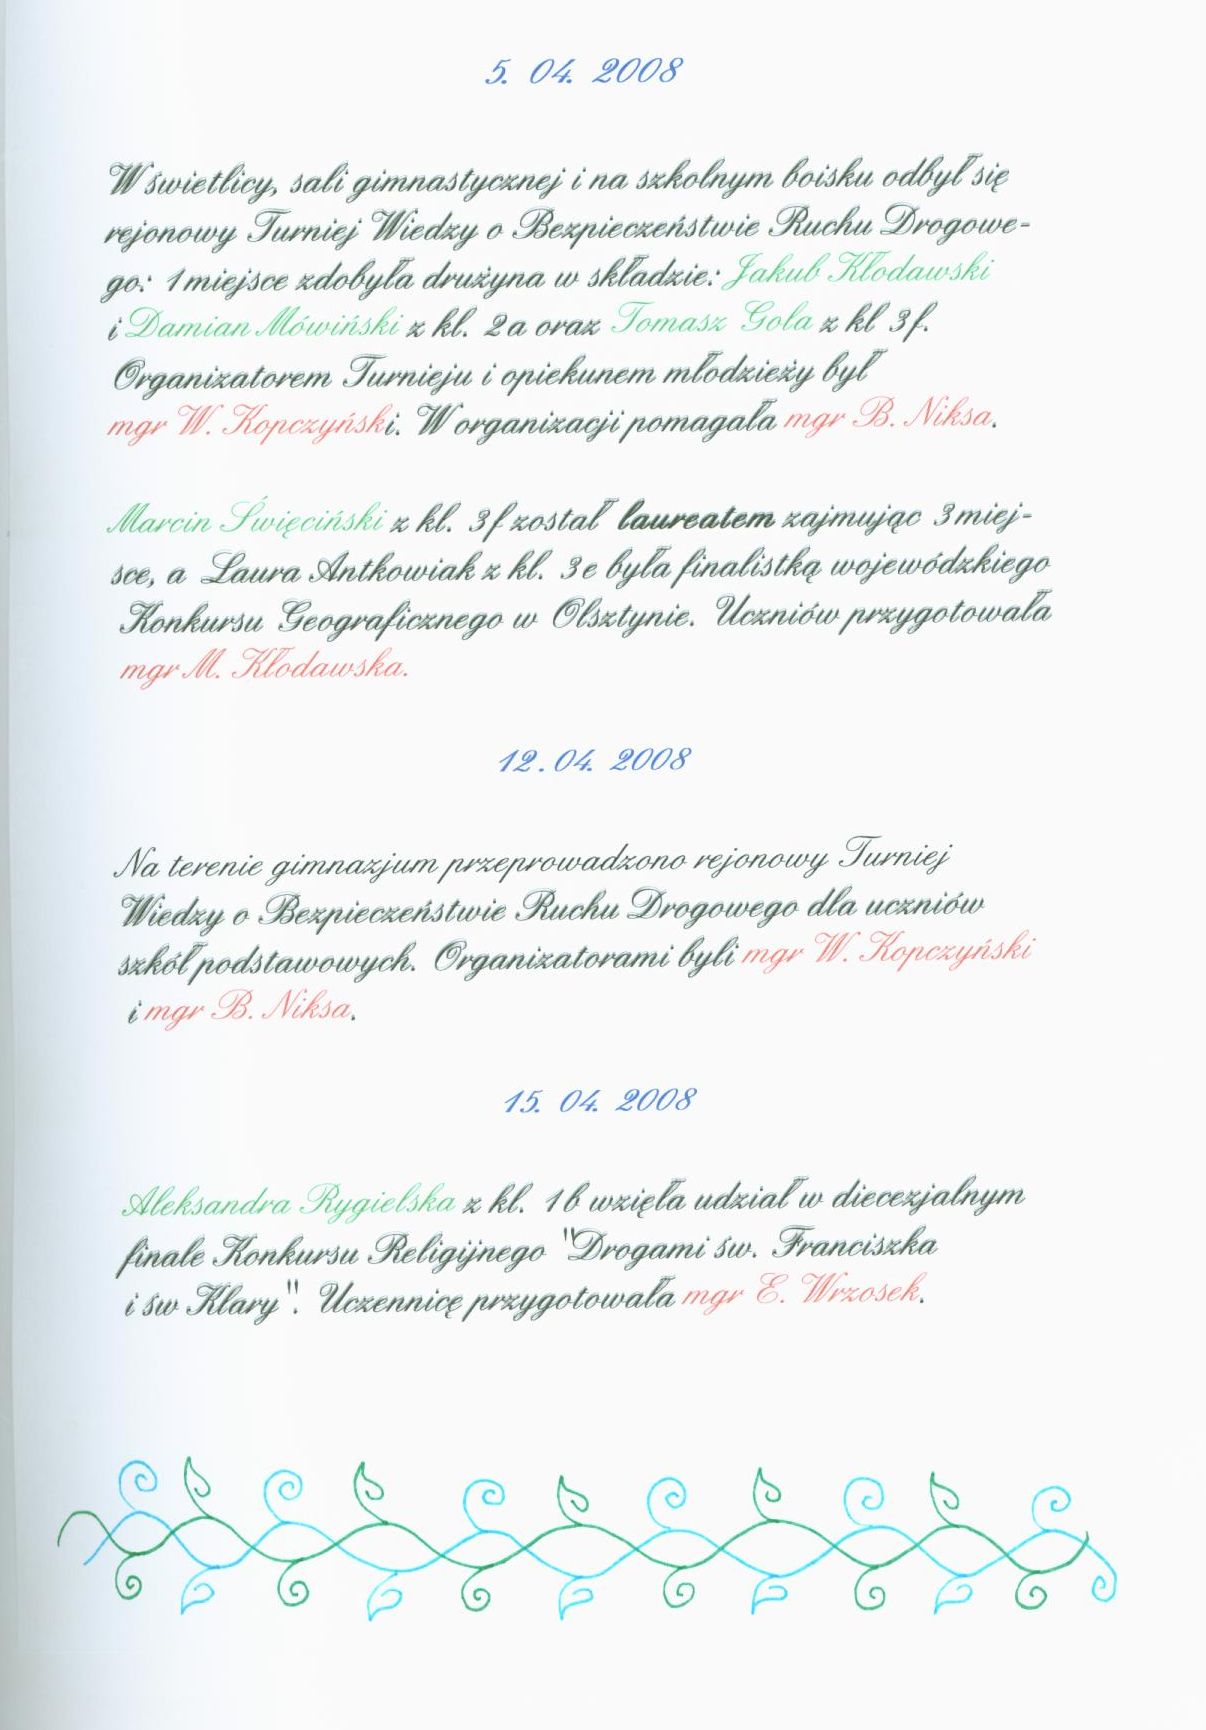 5. 04. 2008
W świetlicy, sali gimnastycznej i na szkolnym boisku odbył się
rejonowy Turniej Wiedzy o Bezpieczeństwie Ruchu Drogowe-
go: 1 miejsce zdobyła drużyna w składzie: Jakub Kłodawski
i Damian Mówiński z kl. 2a oraz Tomasz Gola z kl 3f.
Organizatorem Turnieju i opiekunem młodzieży był
mgr W. Kopczyński. W organizacji pomagała mgr B. Niksa.
Marcin Święciński z kl. 3f został laureatem zajmując 3 miej-
sce, a Laura Antkowiak z kl. 3e była finalistką wojewódzkiego
Konkursu Geograficznego w Olsztynie. Uczniów przygotowała
mgr M. Kłodawska.
12. 04. 2008
Na terenie gimnazjum przeprowadzono rejonowy Turniej
Wiedzy o Bezpieczeństwie Ruchu Drogowego dla uczniów
szkół podstawowych. Organizatorami byli mgr W. Kopczyński
i mgr B. Niksa.
15. 04. 2008
Aleksandra Rygielska z kl. 1b wzięła udział w diecezjalnym
finale Konkursu Religijnego "Drogami św. Franciszka
i św Klary". Uczennicę przygotowała mgr E. Wrzosek.